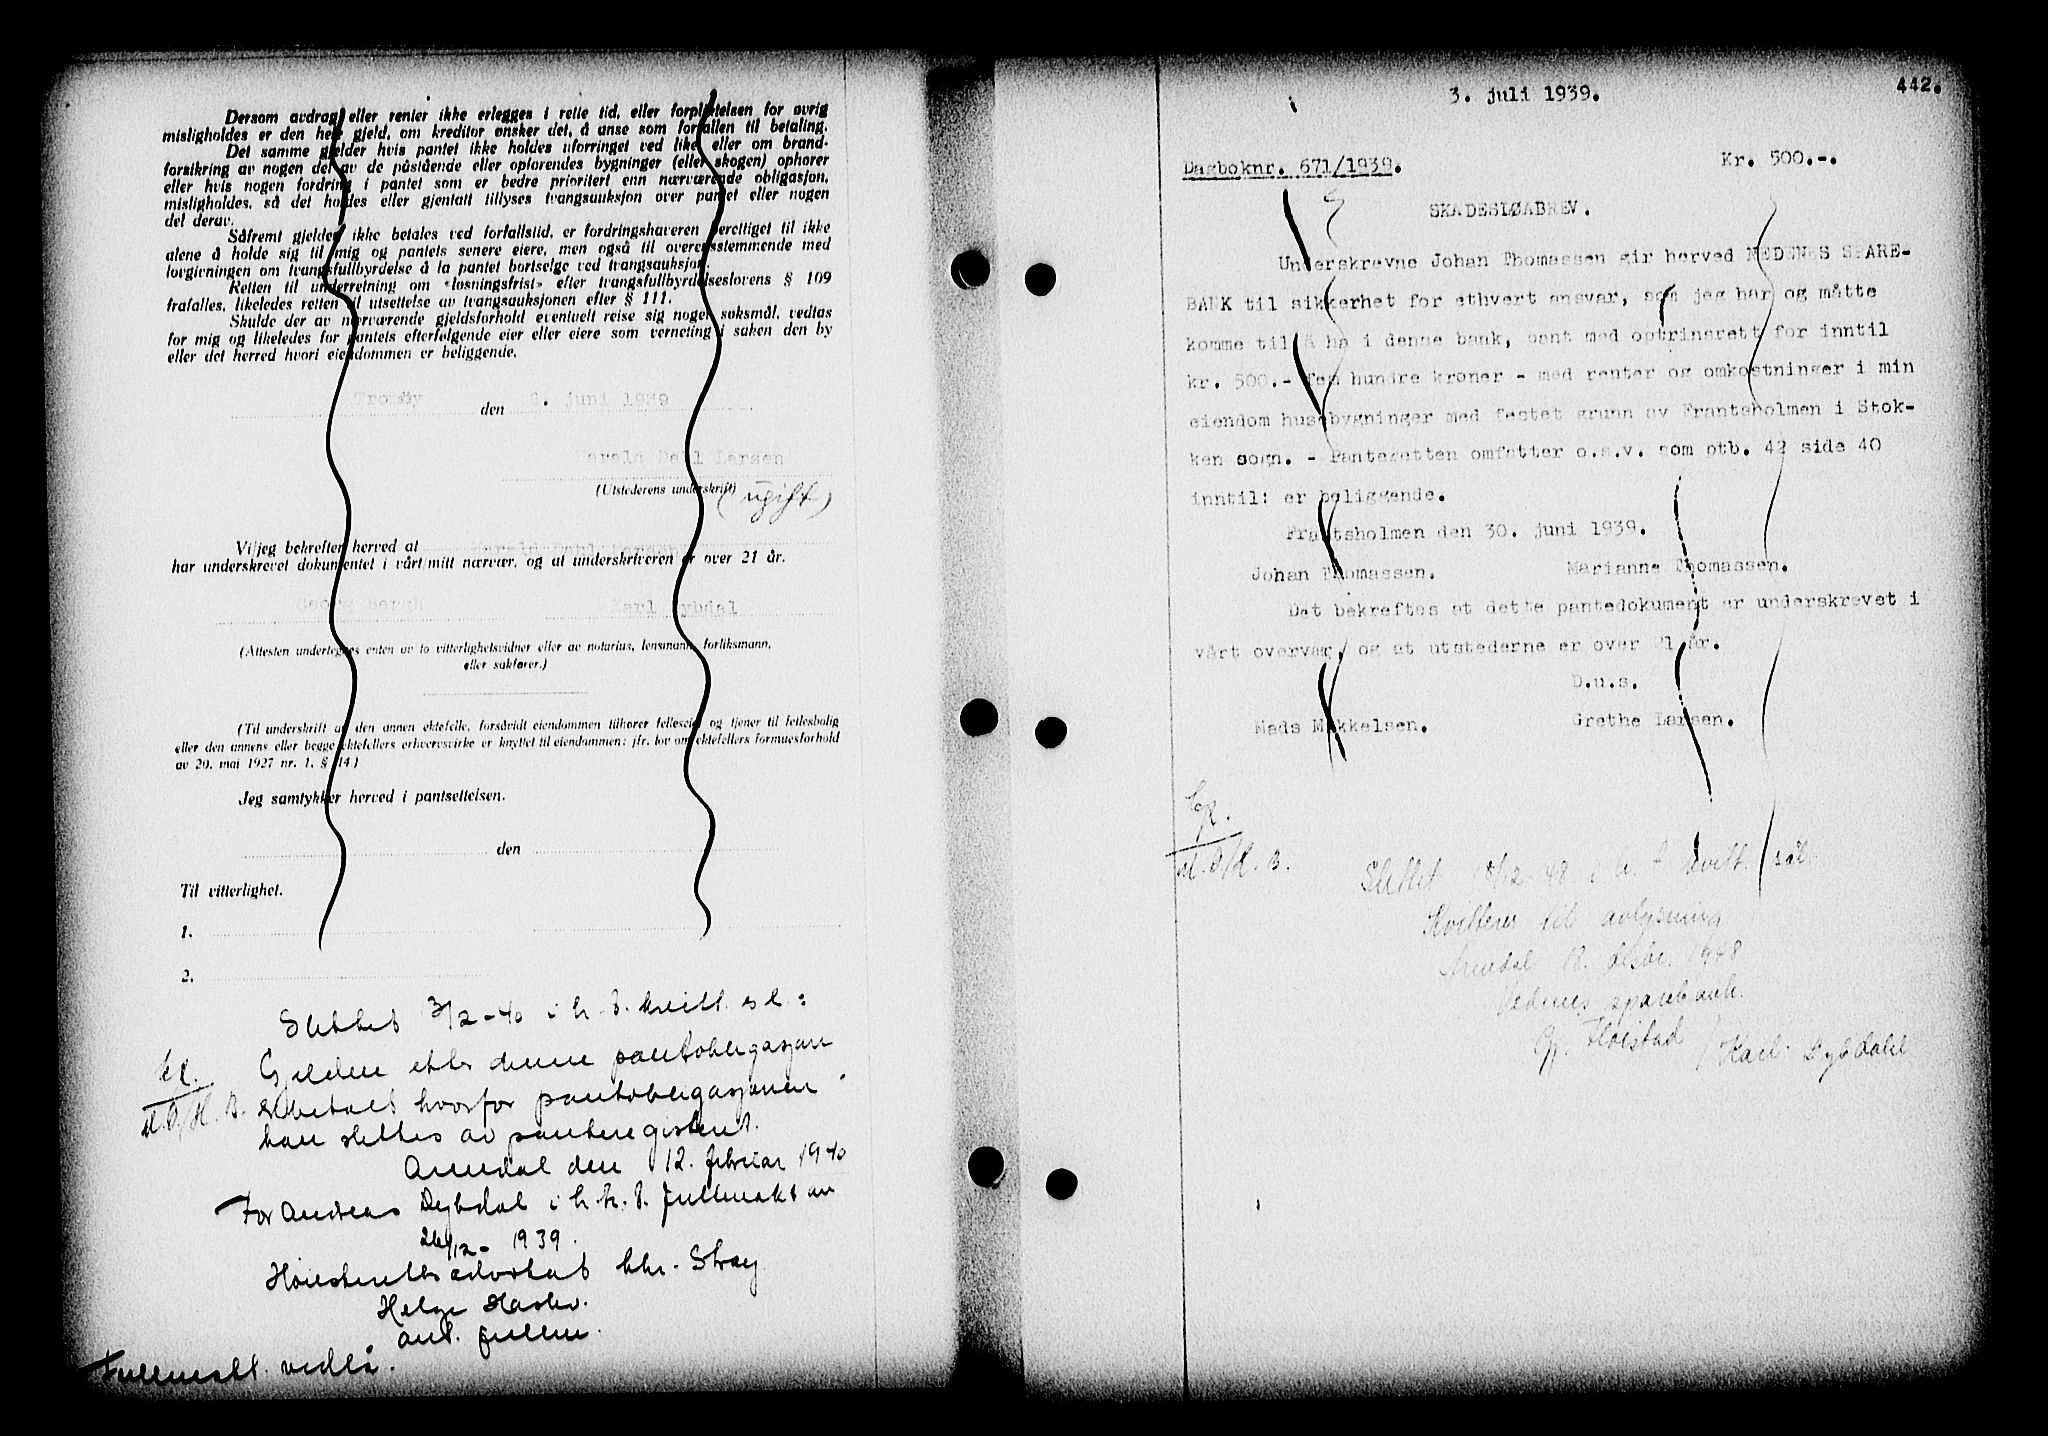 Dersom avdrag eller renter ikke erlegges i rette tid, eller forpliktelsen for øvrig
misligholdes er den hele gjeld, om kreditor ønsker det, å anse som forfallen til betaling.
Det samme gjelder hvis pantet ikke holdes uforringet ved like eller om brand-
forsikring av nogen del av de påstående eller opførendes bygninger (eller skogen) ophører
eller hvis nogen fordring i pantet som er bedre prioritert enn nærværende obligasjon,
misligholdes, så det holdes eller gjentatt tillyses tvangsauksjon over pantet eller nogen
del derav.
Såfremt gjelden ikke betales ved forfallstid, er fordringshaveren berettiget til ikke
alene å holde sig til mig og pantets senere eiere, men også til overensstemmende med
lovgivningen om tvangsfullbyrdelse å la pantet bortselge ved tvangsauksjon.
Retten til underretning om «løsningsfrist» efter tvangsfullbyrdelseslovens § 109
frafalles, likeledes retten til utsettelse av tvangsauksjonen efter § 111.
Skulde der av nærværende gjeldsforhold eventuelt reise sig noget søksmål, vedtas
for mig og likeledes for pantets efterfølgende eier eller eiere som verneting i saken den by
eller det herred hvori eiendommen er beliggende.
Tromøy den 9. juni 1939
Harald Dahl Larsen
(Utstederens underskrift) (ugift)
Vi/jeg bekrefter herved at Harald Dahl Larsen
har underskrevet dokumentet i vårt/mitt nærvær, og at underskriveren er over 21 år.
Georg Bergh Karl Dybdal
(Attesten undertegnes enten av to vitterlighetsvidner eller av notarius, lensmann, forliksmann,
eller sakfører.)
(Til underskrift av den annen ektefelle, forsåvidt eiendommen tilhører felleseie og tjener til fellesbolig
eller den annens eller begge ektefellers erhvervsvirke er knyttet til eiendommen; jfr. lov om ektefellers formuesforhold
av 20. mai 1927 nr. 1, § 14)
Jeg samtykker herved i pantsettelsen.
den
Til vitterlighet.
1.
2.
Slettet 3/2-40 i h. t. kvitt. sål:
Gjelden etter denne pantobligasjon
er betalt hvorfor pantobligasjonen
kan slettes av panteregisteret.
Arendal den 12. februar 1940
For Andreas Dybdal i h. h. t. fullmakt av
26/12- 1939.
Høiesterettsadvokat Chr. Stray
Helge
aut. fullm.
Fullmakt vedlå.
442.
3. juli 1939.
Dagboknr. 671/1939. Kr. 500.-.
SKADESLØSBREV.
Underskrevne Johan Thomassen gir herved NEDENES SPARE-
BANK til sikkerhet for ethvert ansvar, som jeg har og måtte
komme til å ha i denne bank, pant med optrinsrett for inntil
kr. 500.- fem hundre kroner - med renter og omkostninger i min
eiendom husebygninger med festet grunn av Frantsholmen i Stok-
ken sogn. - Panteretten omfatter o.s.v. som ptb. 42 side 40
inntil: er beliggende.
Frantsholmen den 30. juni 1939.
Johan Thomassen. Marianne Thomassen.
Det bekreftes at dette pantedokument er underskrevet i
vårt overvær, og at utstederne er over 21 år.
D.u.s.
Mads Mikkelsen. Grethe Larsen.
Slettet 18/12-48 i h. t. kvitt. sål.
Kvitteres til avlysning
Arendal 18. desbr. 1948
Nedenes sparebank.
Gj. Fløistad / Karl Dybdahl